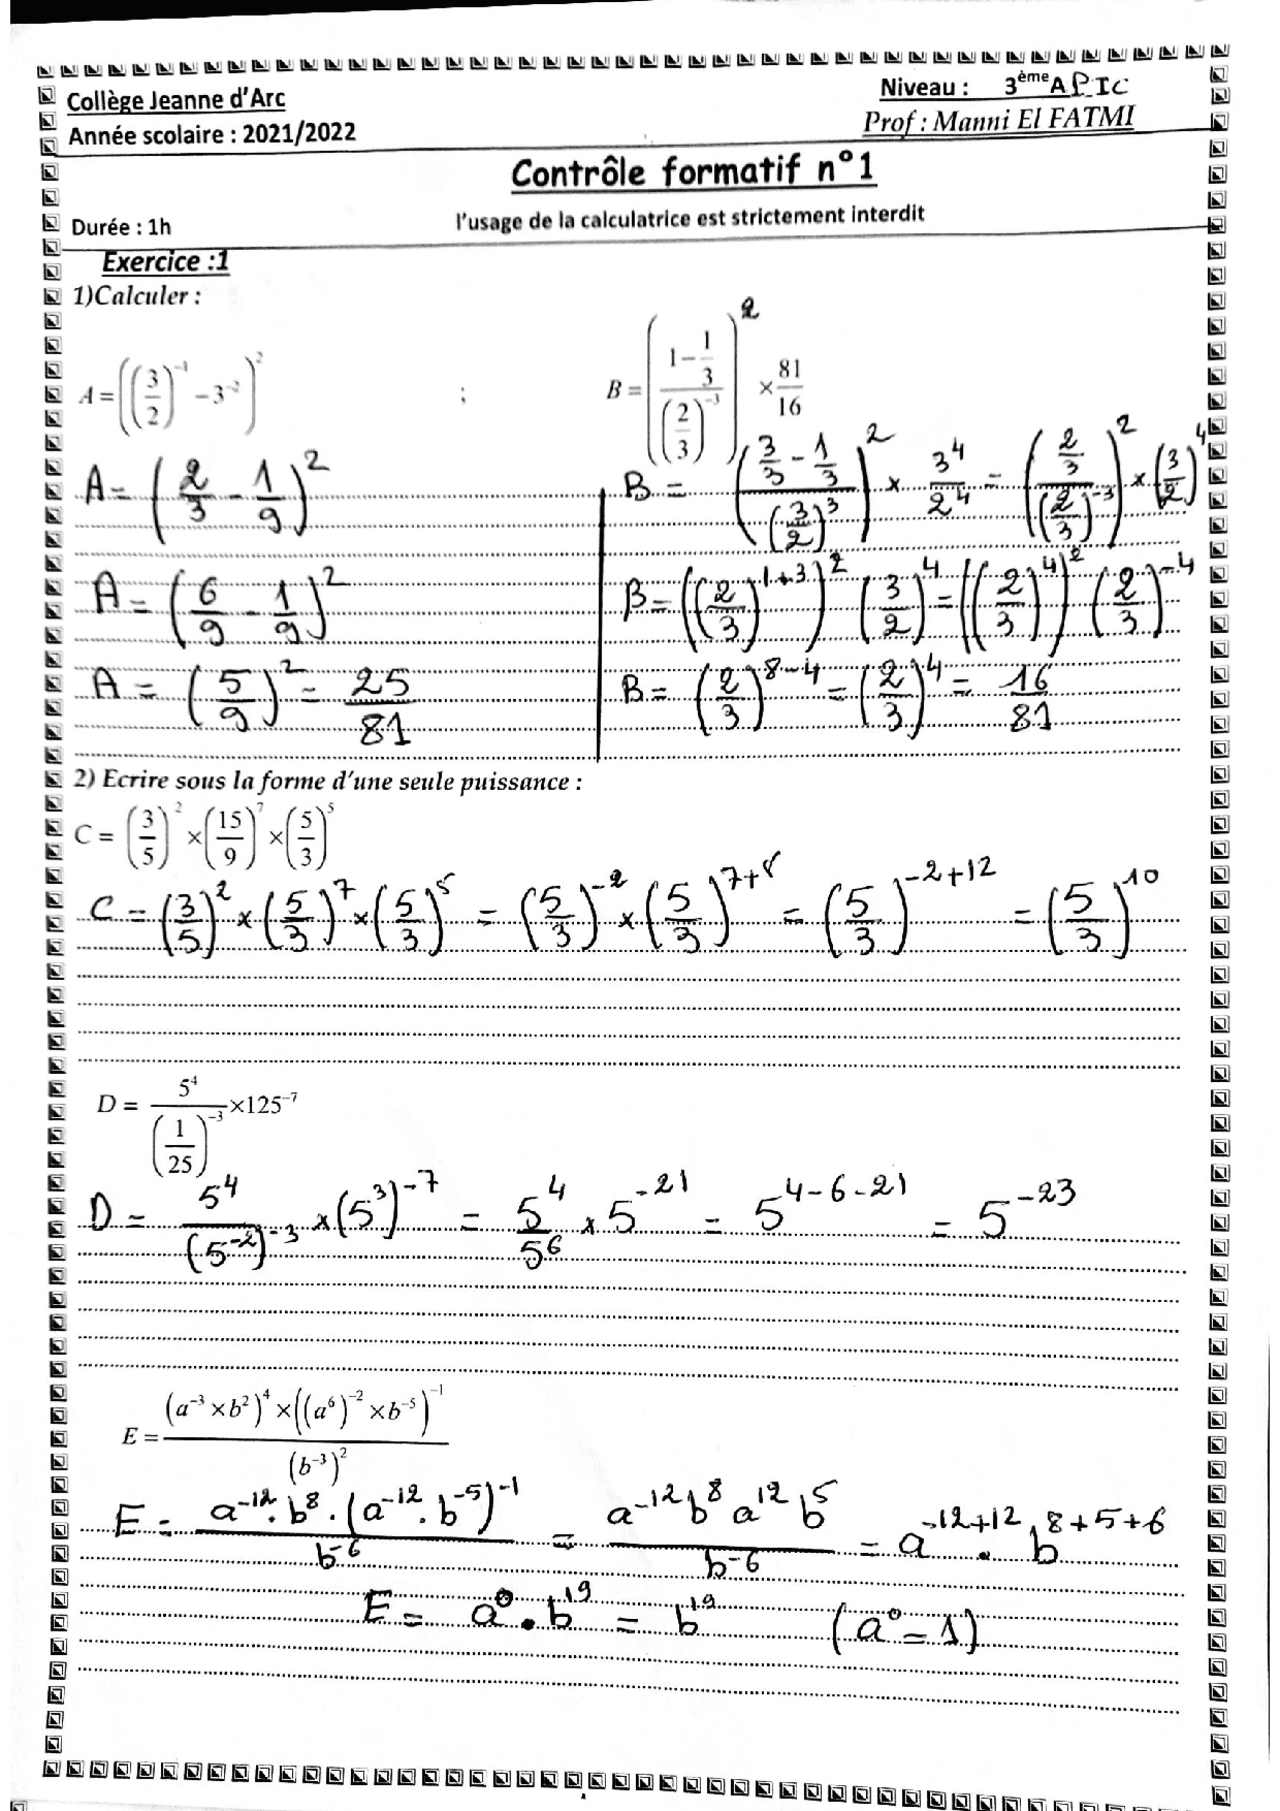 Collège Jeanne d'Arc
Niveau : 3ème APIC
Année scolaire : 2021/2022
Prof : Manni El FATMI
Contrôle formatif n°1
Durée : 1h
l'usage de la calculatrice est strictement interdit
Exercice :1
1)Calculer :
A = ((3/2)^-1 − 3^-2)^2 ; B = ((1 − 1/3)/((2/3)^-3))^2 × 81/16
A = (2/3 - 1/9)^2
B = ((3/3 - 1/3)/((3/2)^3))^2 × 3^4/2^4 = ((2/3)/((2/3)^-3))^2 × (3/2)^4
A = (6/9 - 1/9)^2
B = ((2/3)^1+3)^2 (3/2)^4 = ((2/3)^4)^2 (2/3)^-4
A = (5/9)^2 = 25/81
B = (2/3)^8-4 = (2/3)^4 = 16/81
2) Ecrire sous la forme d'une seule puissance :
C = (3/5)^2 × (15/9)^7 × (5/3)^5
C = (3/5)^2 × (5/3)^7 × (5/3)^5 = (5/3)^-2 × (5/3)^7+5 = (5/3)^-2+12 = (5/3)^10
D = 5^4/((1/25)^-3) ×125^-7
D = 5^4/((5^-2)^-3) × (5^3)^-7 = 5^4/5^6 × 5^-21 = 5^4-6-21 = 5^-23
E = ((a^-3 × b^2)^4 × ((a^6)^-2 × b^-5)^-1)/((b^-3)^2)
E = (a^-12 . b^8 . (a^-12 . b^-5)^-1)/(b^-6) = (a^-12 b^8 a^12 b^5)/(b^-6) = a^-12+12 . b^8+5+6
E = a^0 . b^19 = b^19 (a^0 = 1)